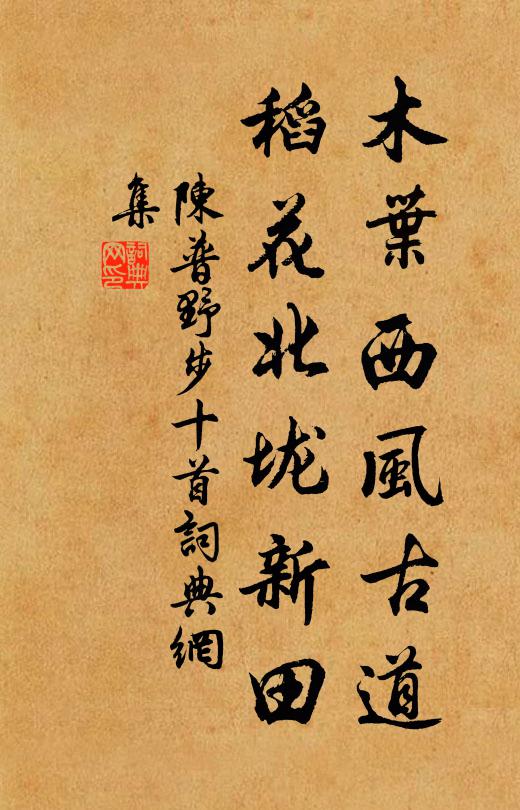 木葉西風古道
稻花北垅新田
陳普野步十首詞典網
集
詞典網印